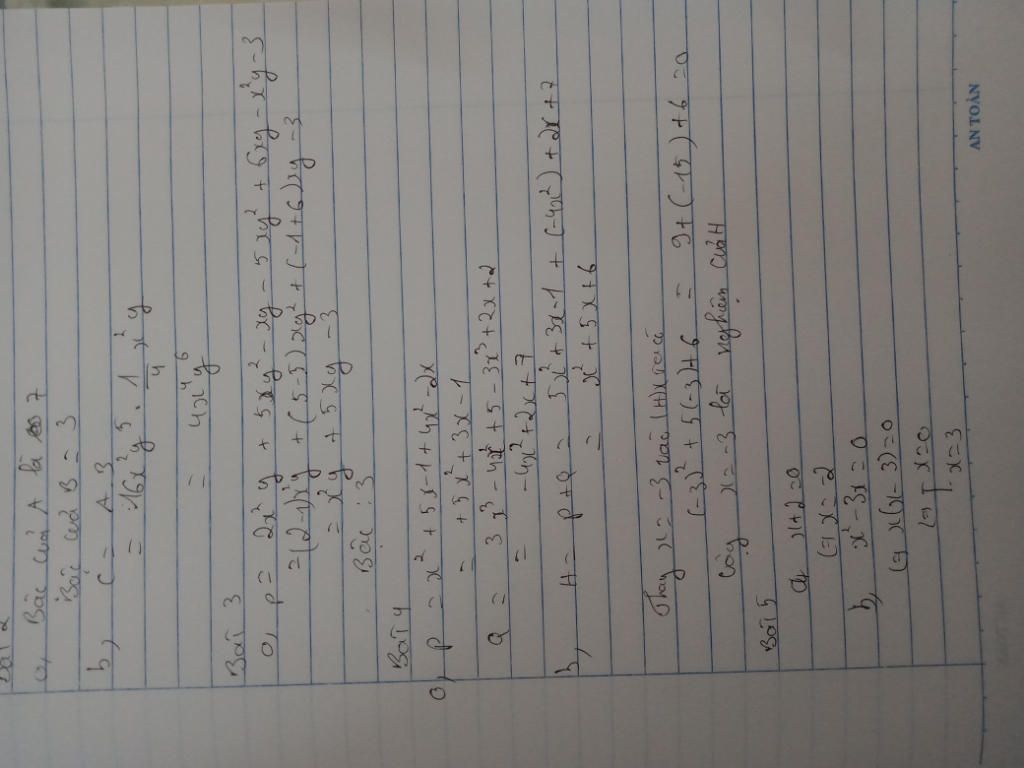 Bài 2
a, Bậc của A là 7
Bậc của B = 3
b, C = A.B
= 16x²y⁵ . 1/4 x²y
= 4x⁴y⁶
Bài 3
a, P = 2x²y + 5xy² - xy - 5xy² + 6xy - x²y - 3
= (2-1)x²y + (5-5)xy² + (-1+6)xy - 3
= x²y + 5xy - 3
Bậc : 3
Bài 4
a, P = x² + 5x - 1 + 4x² - 2x
= + 5x² + 3x - 1
Q = 3x³ - 4x² + 5 - 3x³ + 2x + 2
= -4x² + 2x + 7
b, H = P + Q = 5x² + 3x - 1 + (-4x²) + 2x + 7
= x² + 5x + 6
Thay x = -3 vào (H)
(-3)² + 5(-3) + 6 = 9 + (-15) + 6 = 0
Vậy x = -3 là nghiệm của H
Bài 5
a, x + 2 = 0
(=) x = -2
b, x² - 3x = 0
(=) x(x - 3) = 0
(=) [ x = 0
x = 3
AN TOÀN